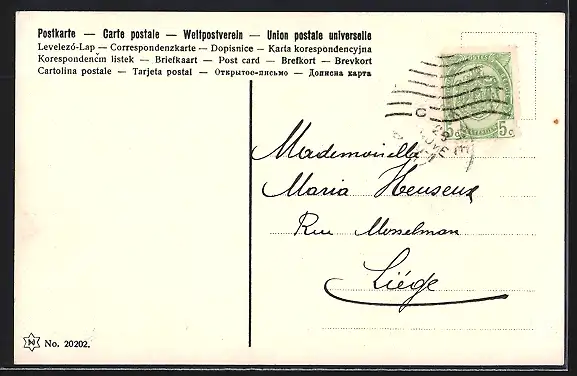 Postkarte — Carte postale — Weltpostverein — Union postale universelle
Levelező-Lap — Correspondenzkarte — Dopisnice — Karta korespondencyjna
Korespondenčm listek — Briefkaart — Post card — Brefkort — Brevkort
Cartolina postale — Tarjeta postal — Открытое-письмо — Дописна карта
5c
Mademoiselle
Maria Heuseux
Rue Mosselman
Liége
No. 20202.